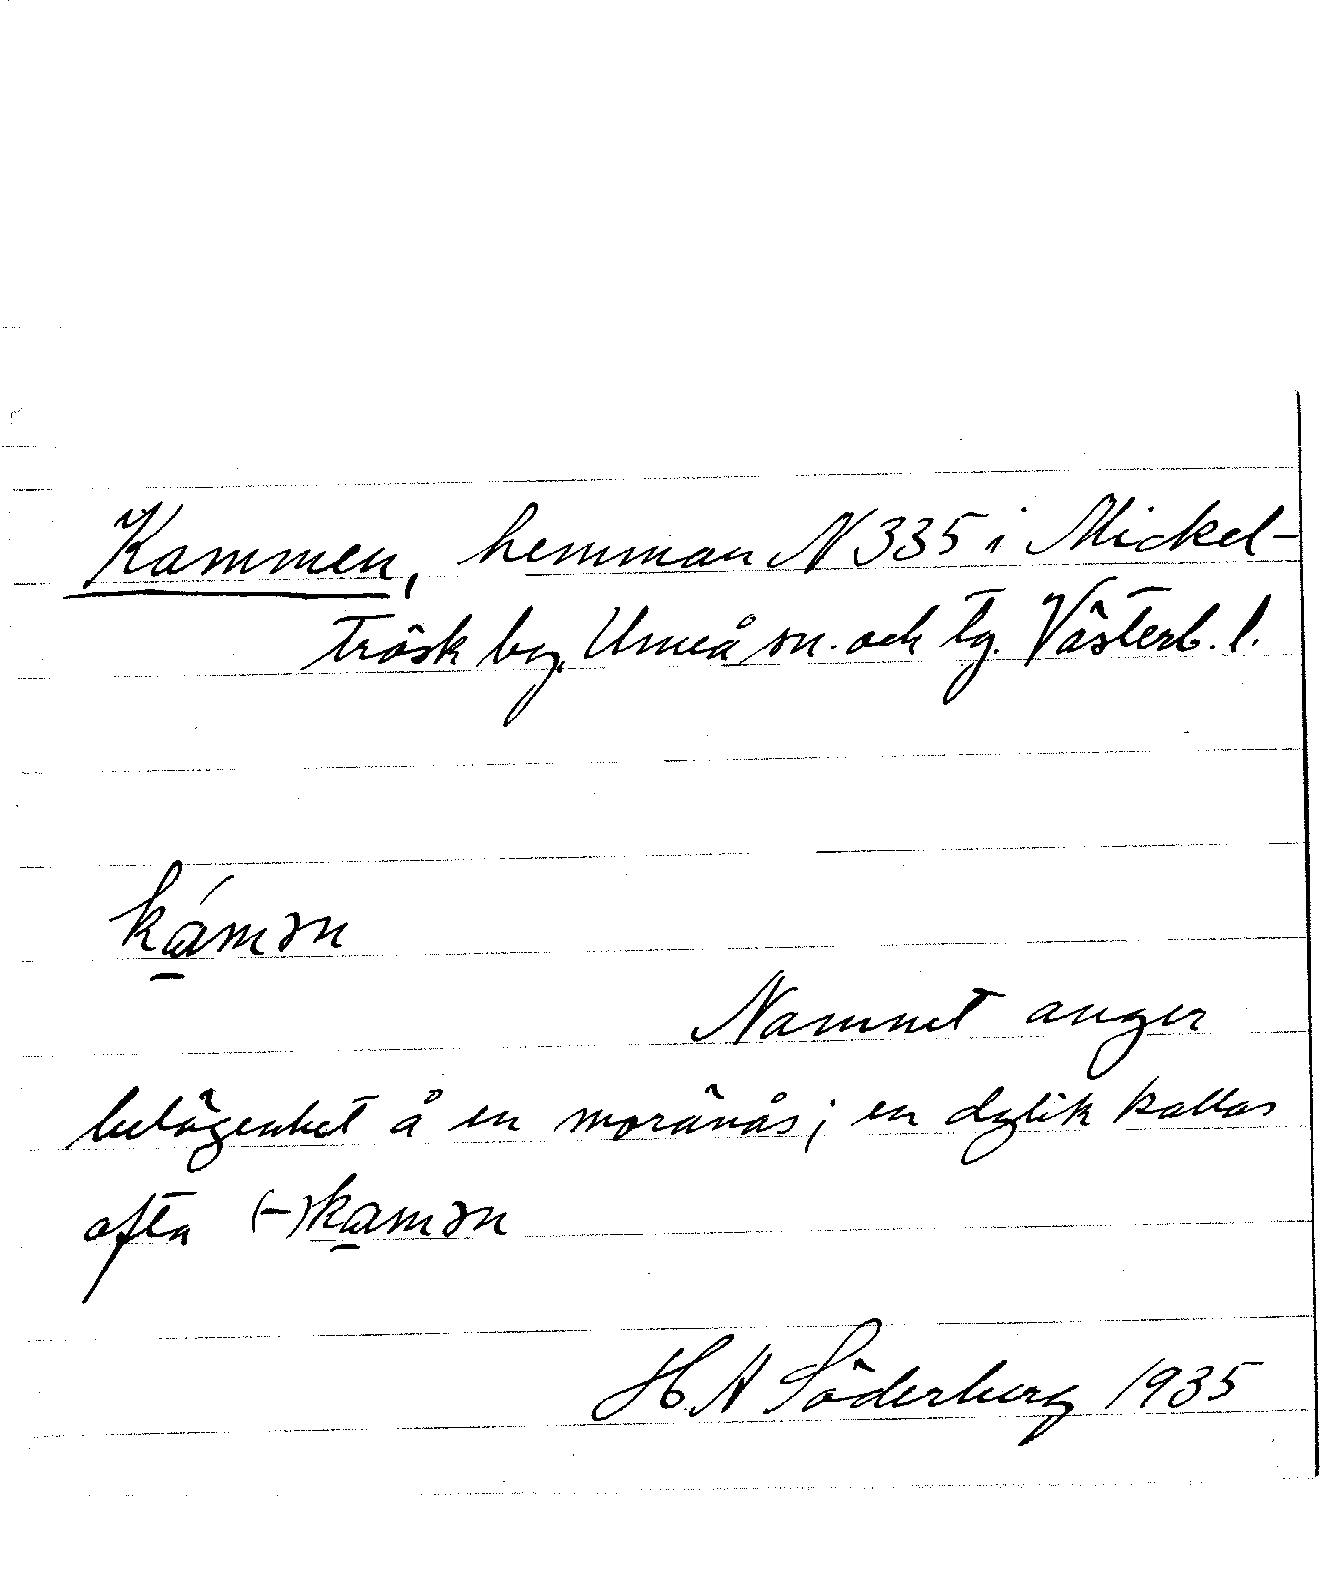 Kammen, hemman N 335 i Mickel-
träsk by, Umeå sn. och tg. Västerb. l.
kámən
Namnet anger
belägenhet å en moränås; en dylik kallas
ofta (-)kamən
H A Söderberg 1935